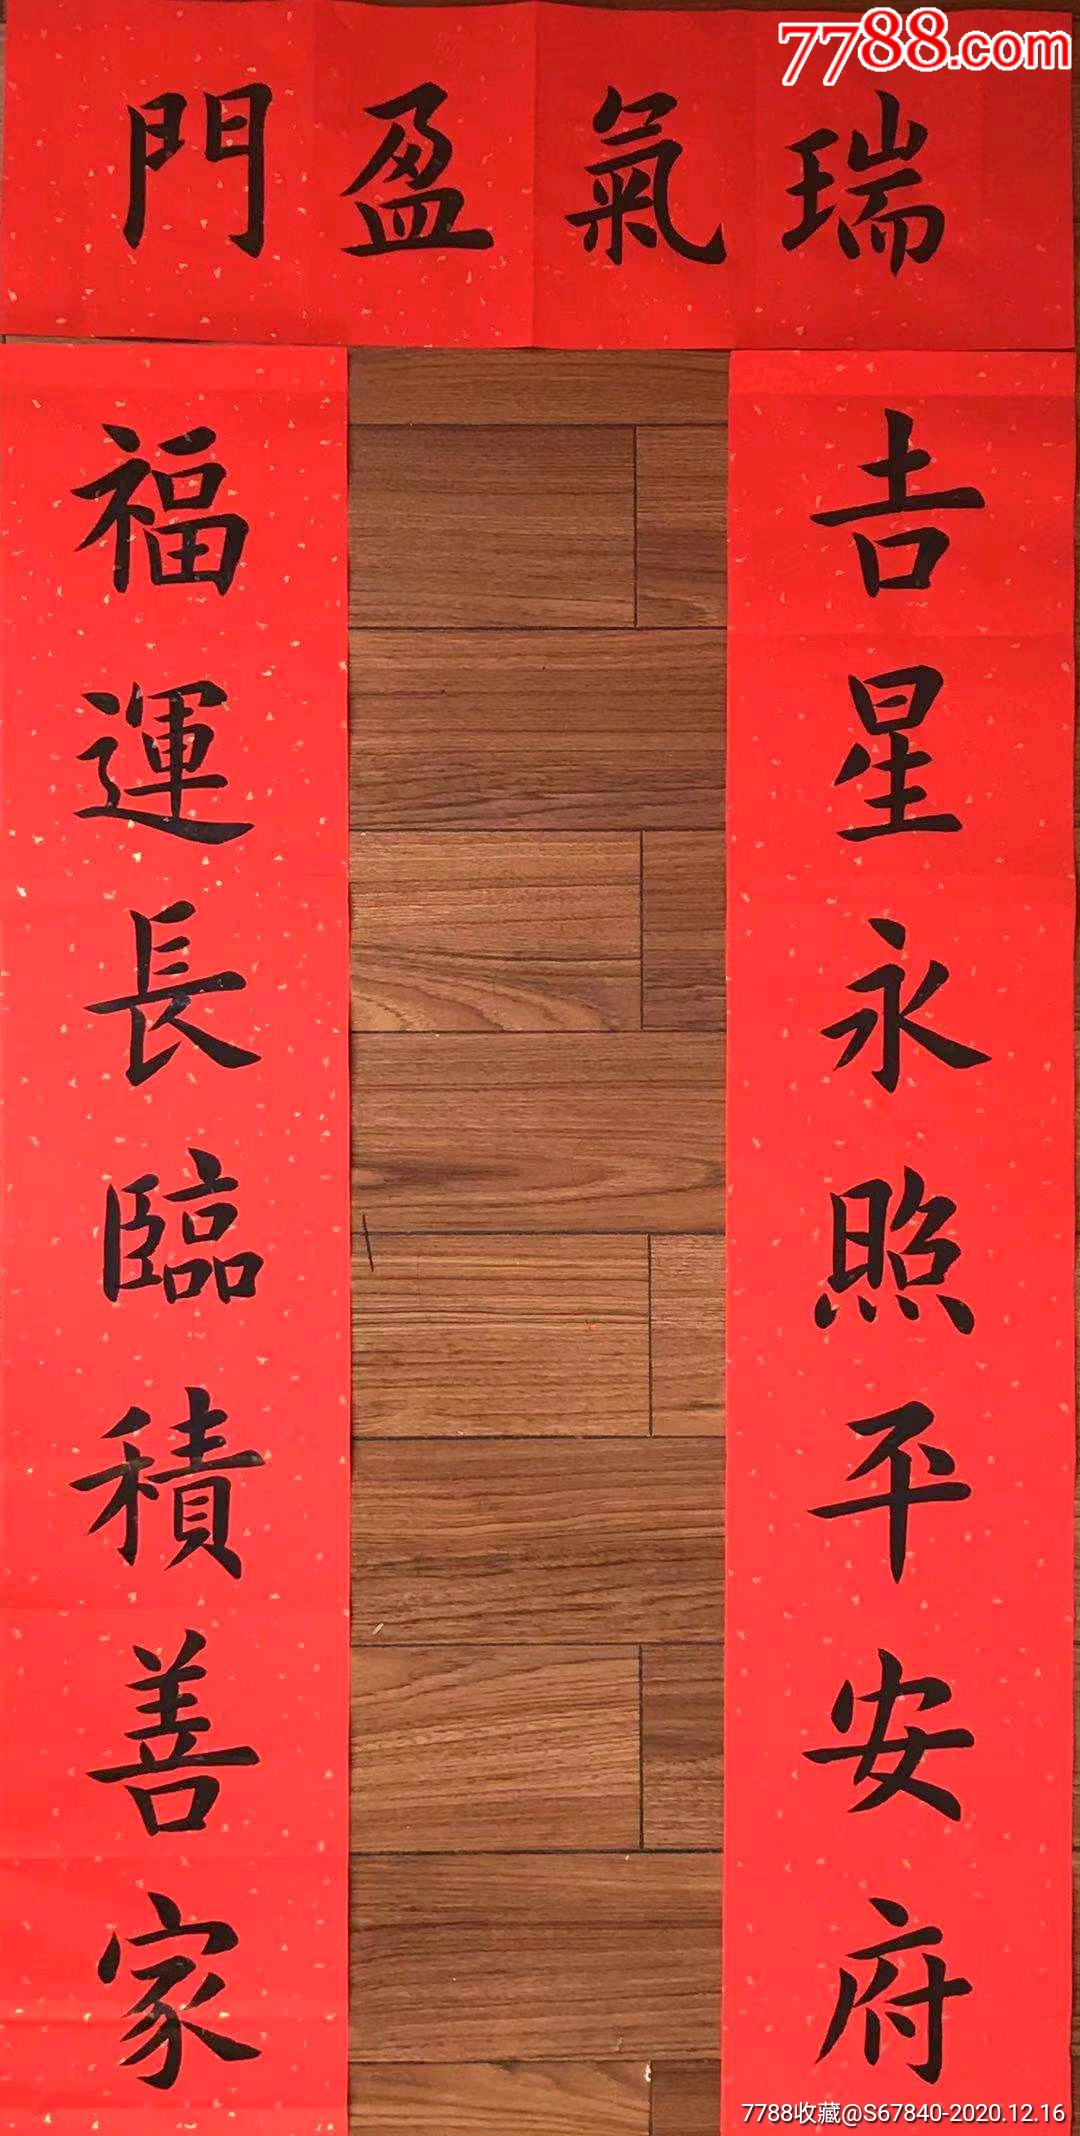 7788.com
瑞氣盈門
吉星永照平安府
福運長臨積善家
7788收藏@S67840-2020.12.16